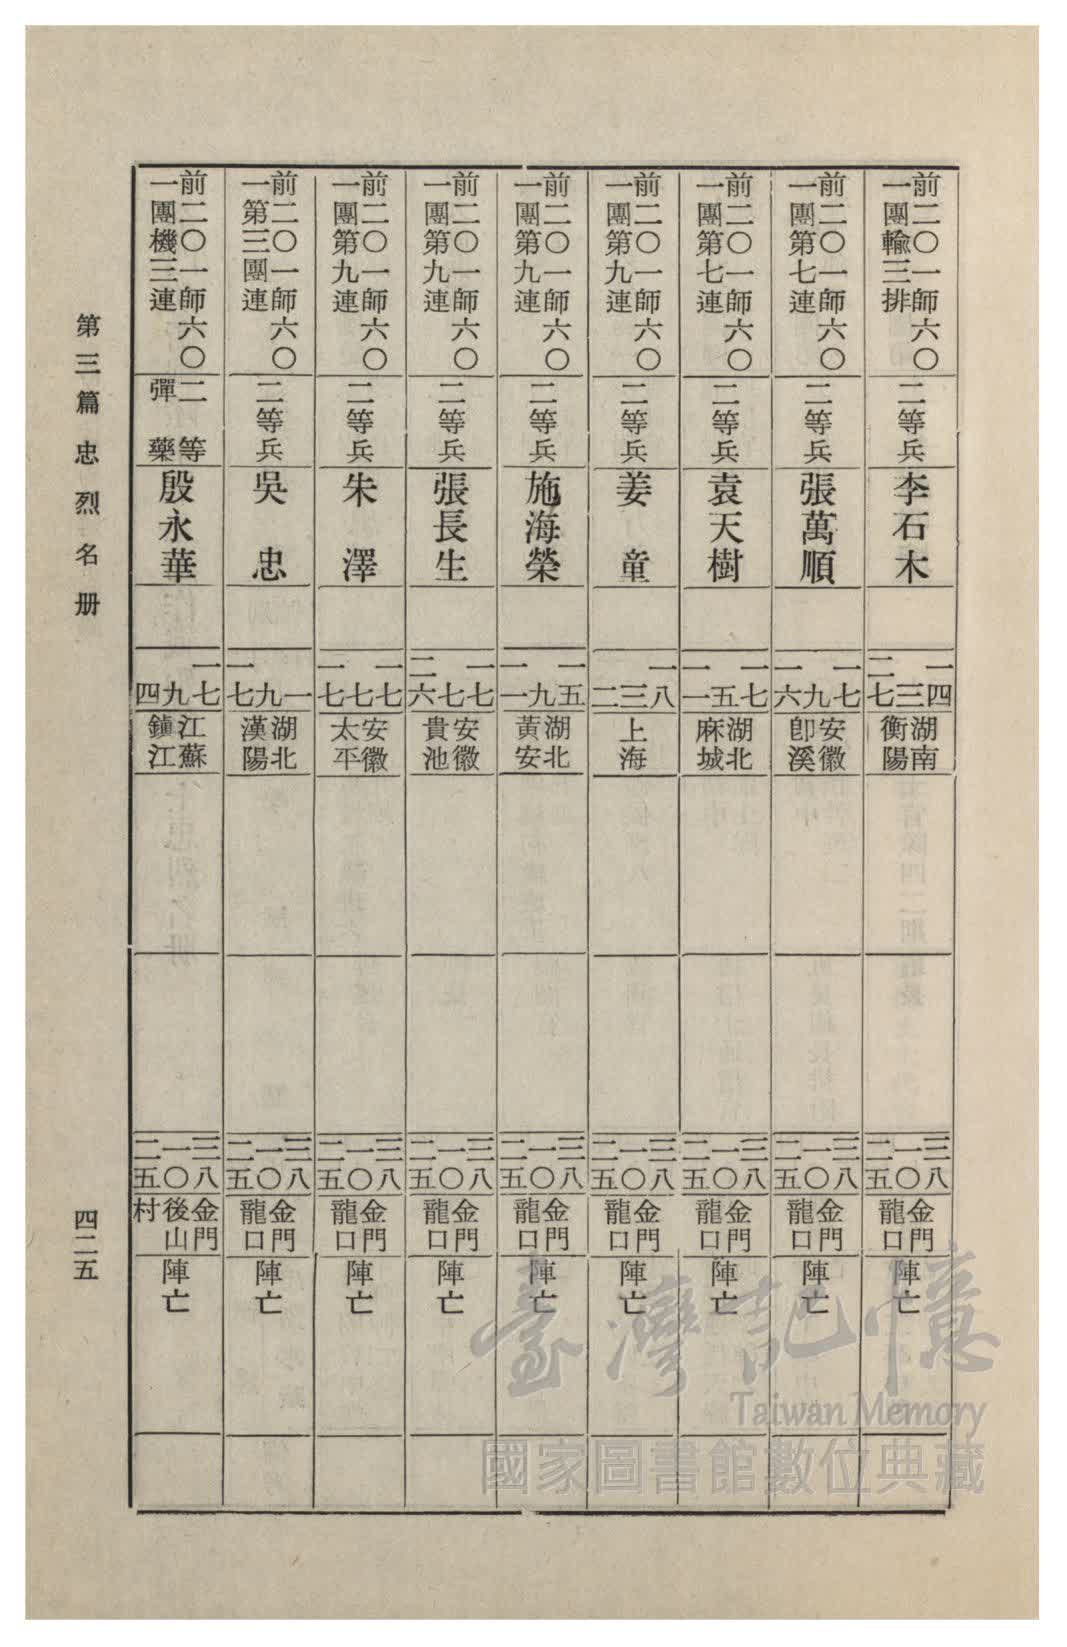 前二〇一師六〇
一團輸三排
二等兵
李石木
一四
三
二七
湖南
衡陽
三八
一〇
二五
金門
龍口
陣亡
前二〇一師六〇
一團第七連
二等兵
張萬順
一七
九
一六
安徽
卽溪
三八
一〇
二五
金門
龍口
陣亡
前二〇一師六〇
一團第七連
二等兵
袁天樹
一七
五
一一
湖北
麻城
三八
一〇
二五
金門
龍口
陣亡
前二〇一師六〇
一團第九連
二等兵
姜童
一八
三
二
上海
三八
一〇
二五
金門
龍口
陣亡
前二〇一師六〇
一團第九連
二等兵
施海榮
一五
九
一一
湖北
黃安
三八
一〇
二五
金門
龍口
陣亡
前二〇一師六〇
一團第九連
二等兵
張長生
一七
七
二六
安徽
貴池
三八
一〇
二五
金門
龍口
陣亡
前二〇一師六〇
一團第九連
二等兵
朱澤
一七
七
一七
安徽
太平
三八
一〇
二五
金門
龍口
陣亡
前二〇一師六〇
一第三團連
二等兵
吳忠
一
九
一七
湖北
漢陽
三八
一〇
二五
金門
龍口
陣亡
前二〇一師六〇
一團機三連
二等
彈藥
殷永華
一七
九
四
江蘇
鎭江
三八
一〇
二五
金門
後山
村
陣亡
第三篇 忠烈名册
四二五
臺灣記憶
Taiwan Memory
國家圖書館數位典藏